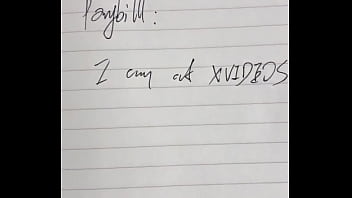 Paybill:
I am at XVIDEOS